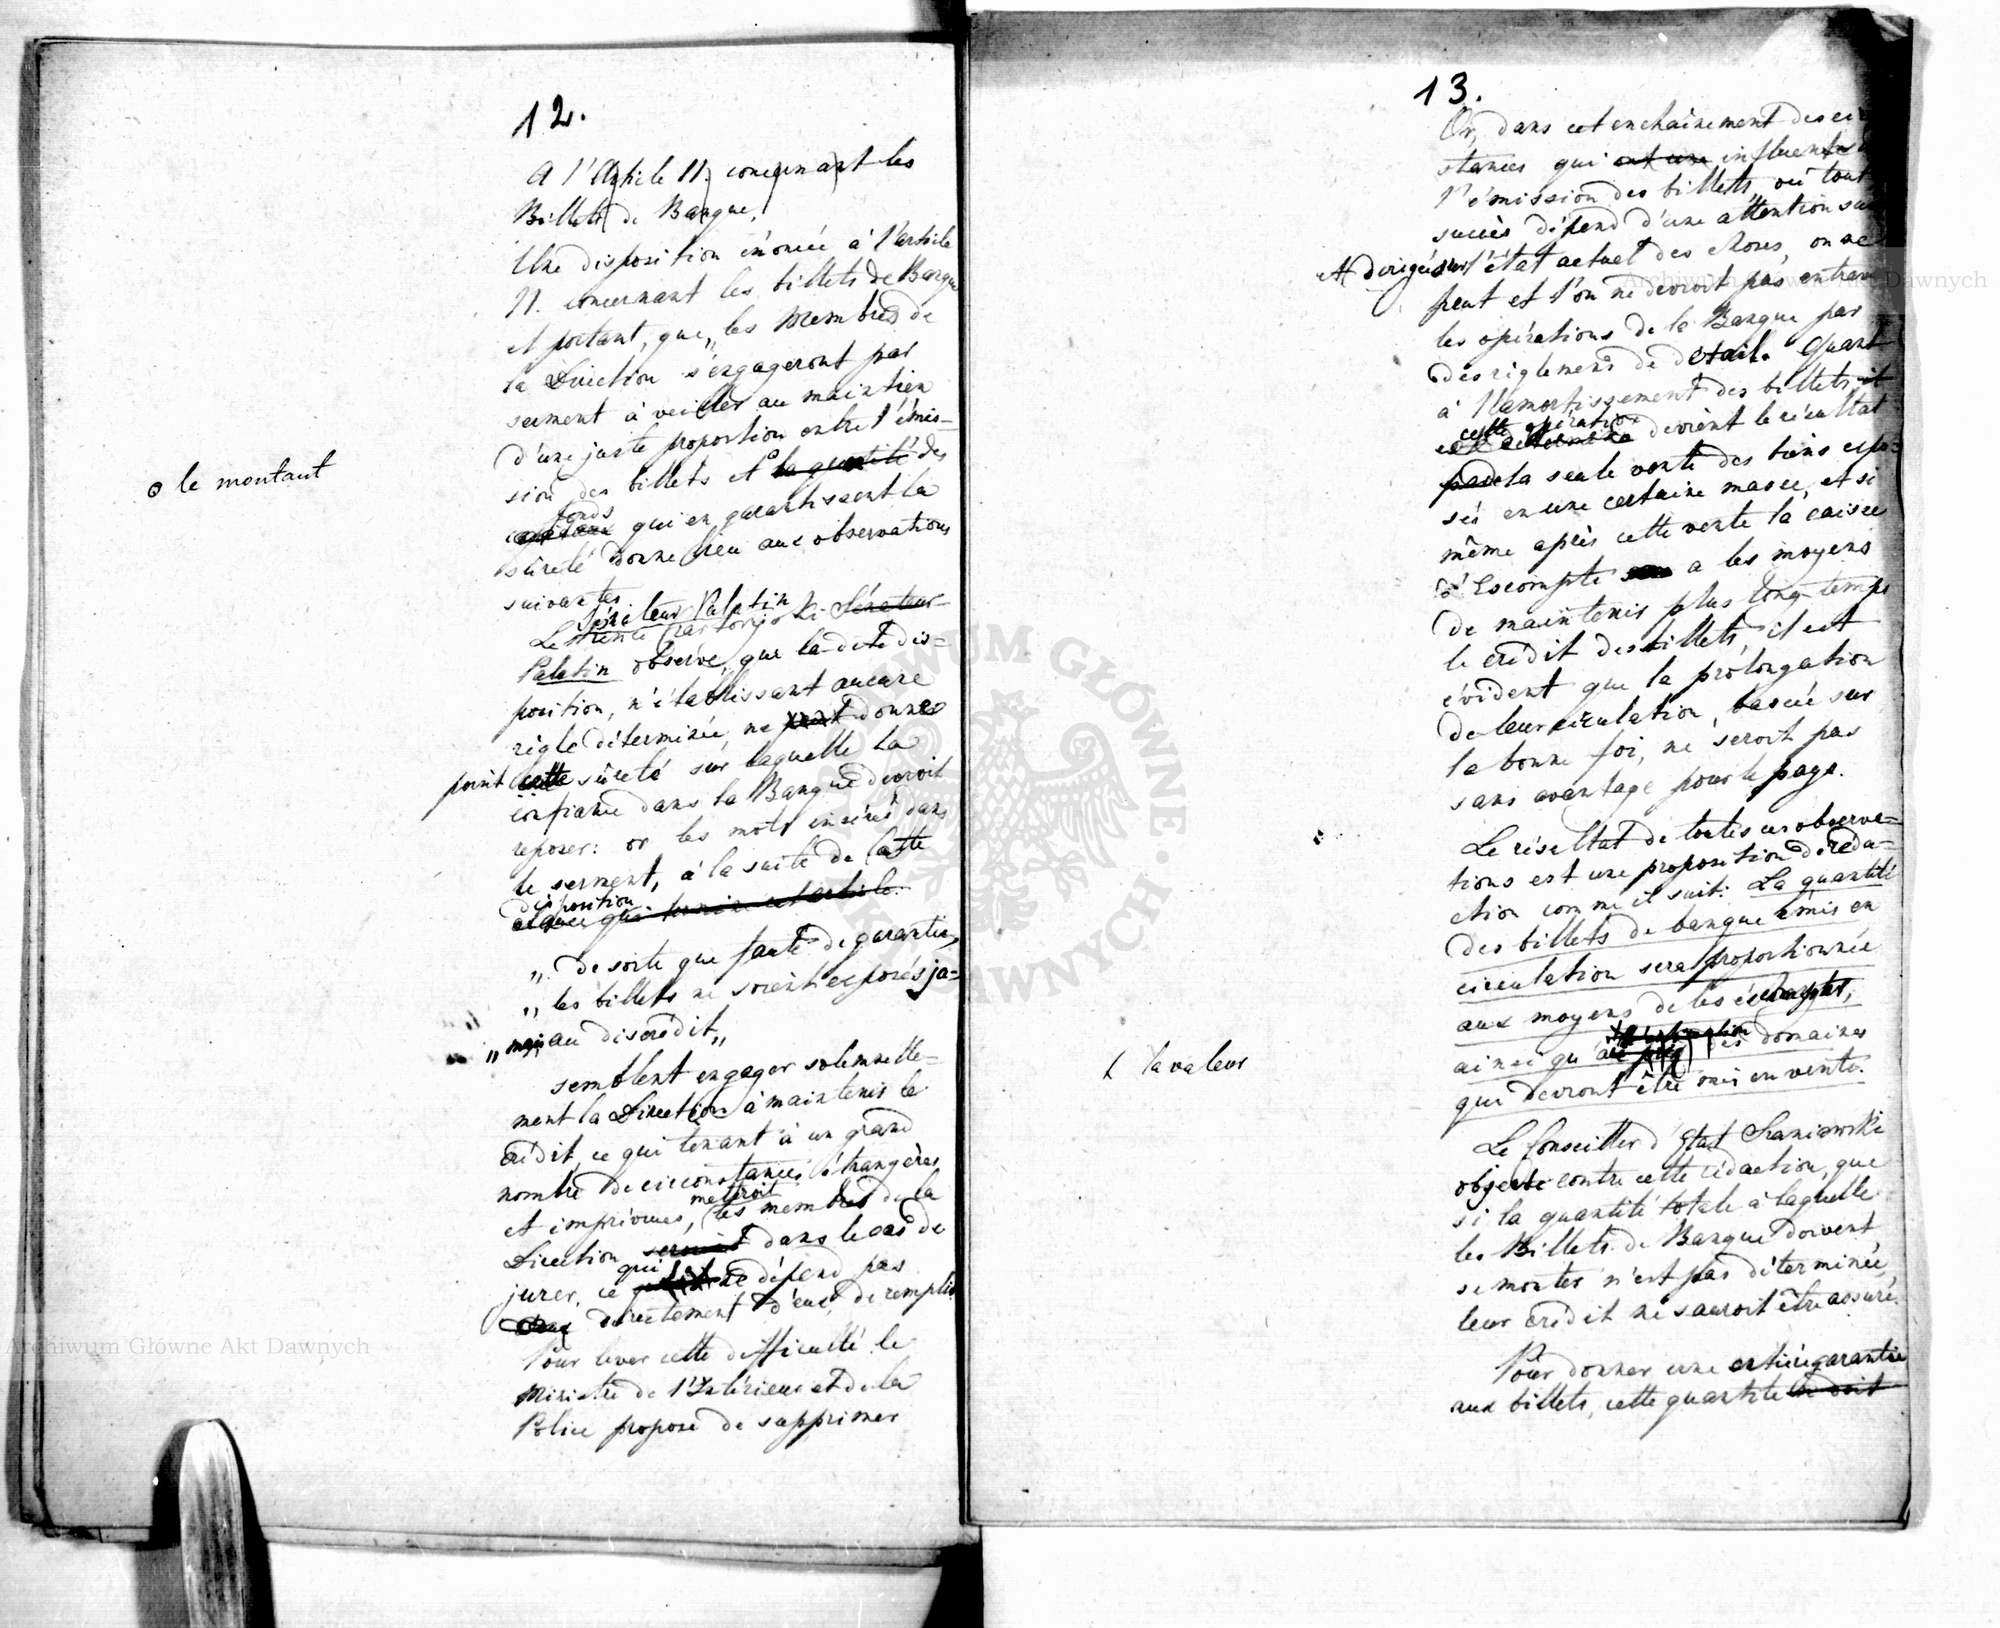 12.
A l'Article 11. concernant les
Billets de Banque,
Une disposition énoncée à l'article
11. concernant les billets de Banque
et portant, que „les Membres de
la Direction s'engageront par
serment à veiller au maintien
d'une juste proportion entre l'émis-
sion des billets et la quantité des
o le montant
fonds
capitaux qui en garantissent la
sûreté donne lieu aux observations
suivantes.
Sénateur Palatin
Le Prince Czartoryski Sénateur
Palatin observe, que la dite dis-
position, n'établissant aucune
règle déterminée, ne peut donner
point cette sûreté sur laquelle la
confiance dans la Banque devroit
reposer: or les mots insérés dans
le serment, à la suite de cette
disposition
qui termine cet article.
„ de sorte que faute de garantie,
„ les billets ne soient exposés ja-
„ mais au discrédit„
semblent engager solemnelle-
ment la Direction à maintenir le
crédit, ce qui tenant à un grand
nombre de circonstances étrangères
mettroit
et imprévues, les membres de la
Direction seroient dans le cas de
qui
jurer, ce ne dépend pas
directement d'eux, de remplir
Pour lever cette difficulté le
Ministre de l'Intérieur et de la
Police propose de supprimer
13.
Or, dans cet enchaînement des cir
stances qui ont une influent
l'émission des billets, où tout
succès dépend d'une attention
et dirigée sur l'état actuel des choses, on ne
peut et l'on ne devroit pas entraver
les opérations de la Banque par
des règlemens de détail. Quant
à l'amortissement des billets, et
cette opération
devient le résultat
par la seule vente des biens expo-
sés en une certaine masse, et si
même après cette vente la caisse
d'Escompte a les moyens
de maintenir plus long-temps
le crédit des billets, il est
évident que la prolongation
de leur circulation, basée sur
la bonne foi, ne seroit pas
sans avantage pour le pays.
Le résultat de toutes ces observa-
tions est une proposition de réda-
ction comme il suit: La quantité
des billets de banque émis en
circulation sera proportionnée
aux moyens de les échanger,
ainsi qu'au prix des domaines
la valeur
qui devront être mis en vente.
Le Conseiller d'Etat Staniewski
objecte contre cette rédaction, que
si la quantité totale à laquelle
les Billets de Banque doivent
se monter n'est pas déterminée,
leur crédit ne sauroit être assuré.
Pour donner une entière garantie
aux billets, cette quantité en doit
Archiwum Główne Akt Dawnych
Archiwum Główne Akt Dawnych
ARCHIWUM GŁÓWNE AKT DAWNYCH